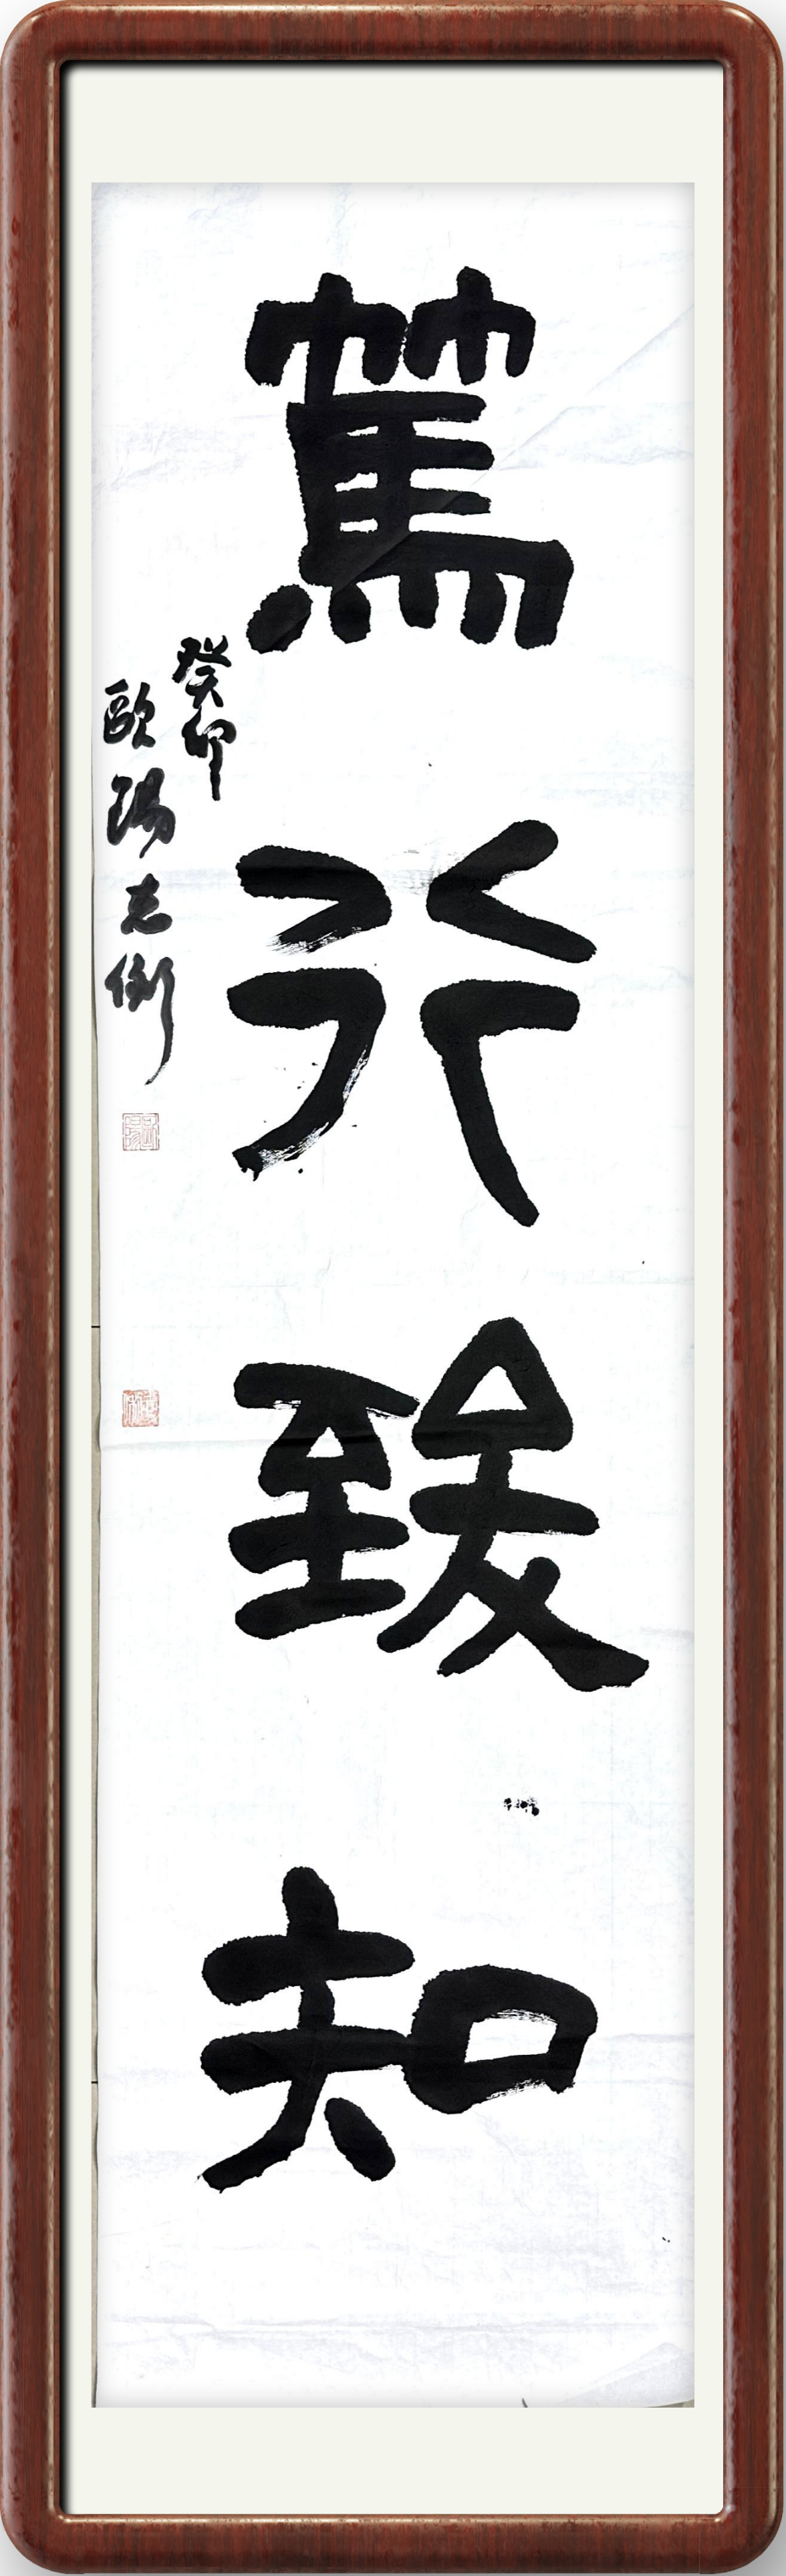 篤行致知
癸卯
歐陽志